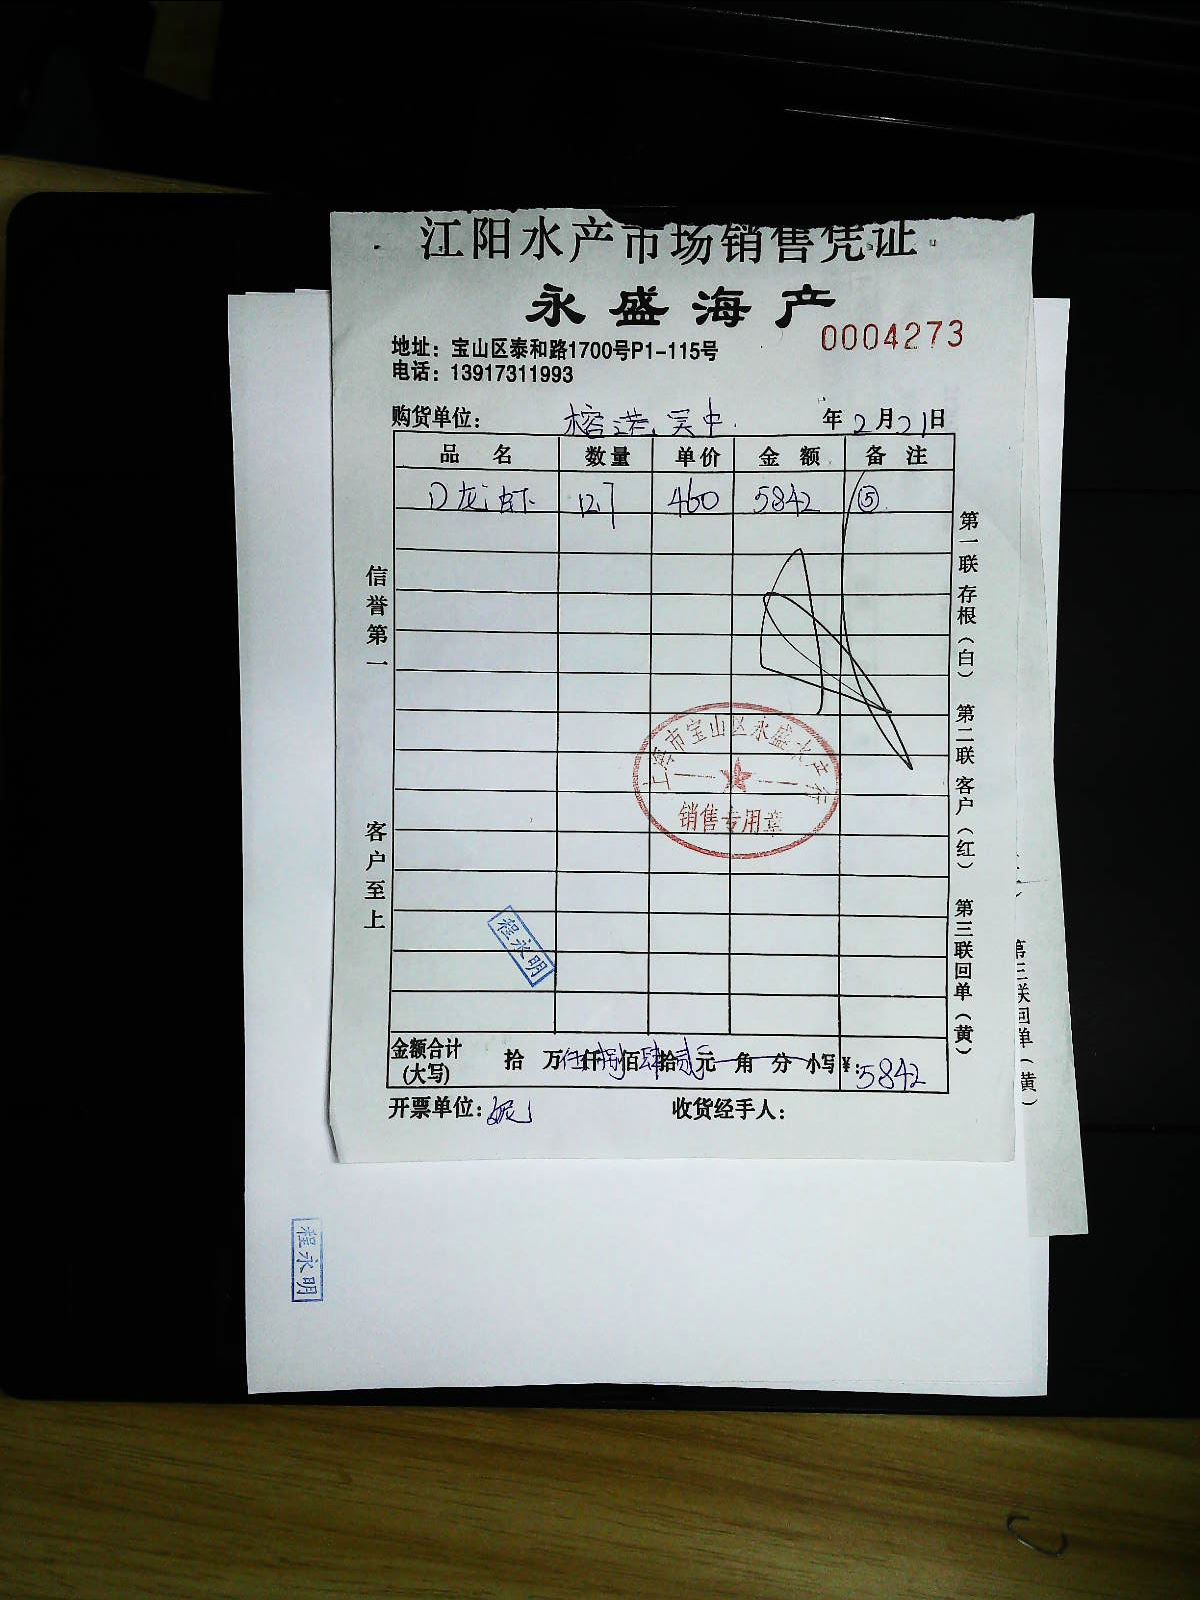 江阳水产市场销售凭证
永盛海产
0004273
地址：宝山区泰和路1700号P1-115号
电话：13917311993
购货单位： 榕港 吴中 年2月21日
品名 数量 单价 金额 备注
龙虾 12.7 460 5842 ⑤
信誉第一
客户至上
第一联 存根（白） 第二联 客户（红） 第三联 回单（黄）
上海市宝山区永盛水产行
销售专用章
程永明
金额合计(大写) 拾 万 伍仟 捌佰 肆拾 贰元 角 分 小写¥：5842
开票单位：妮 收货经手人：
第三联回单（黄）
程永明